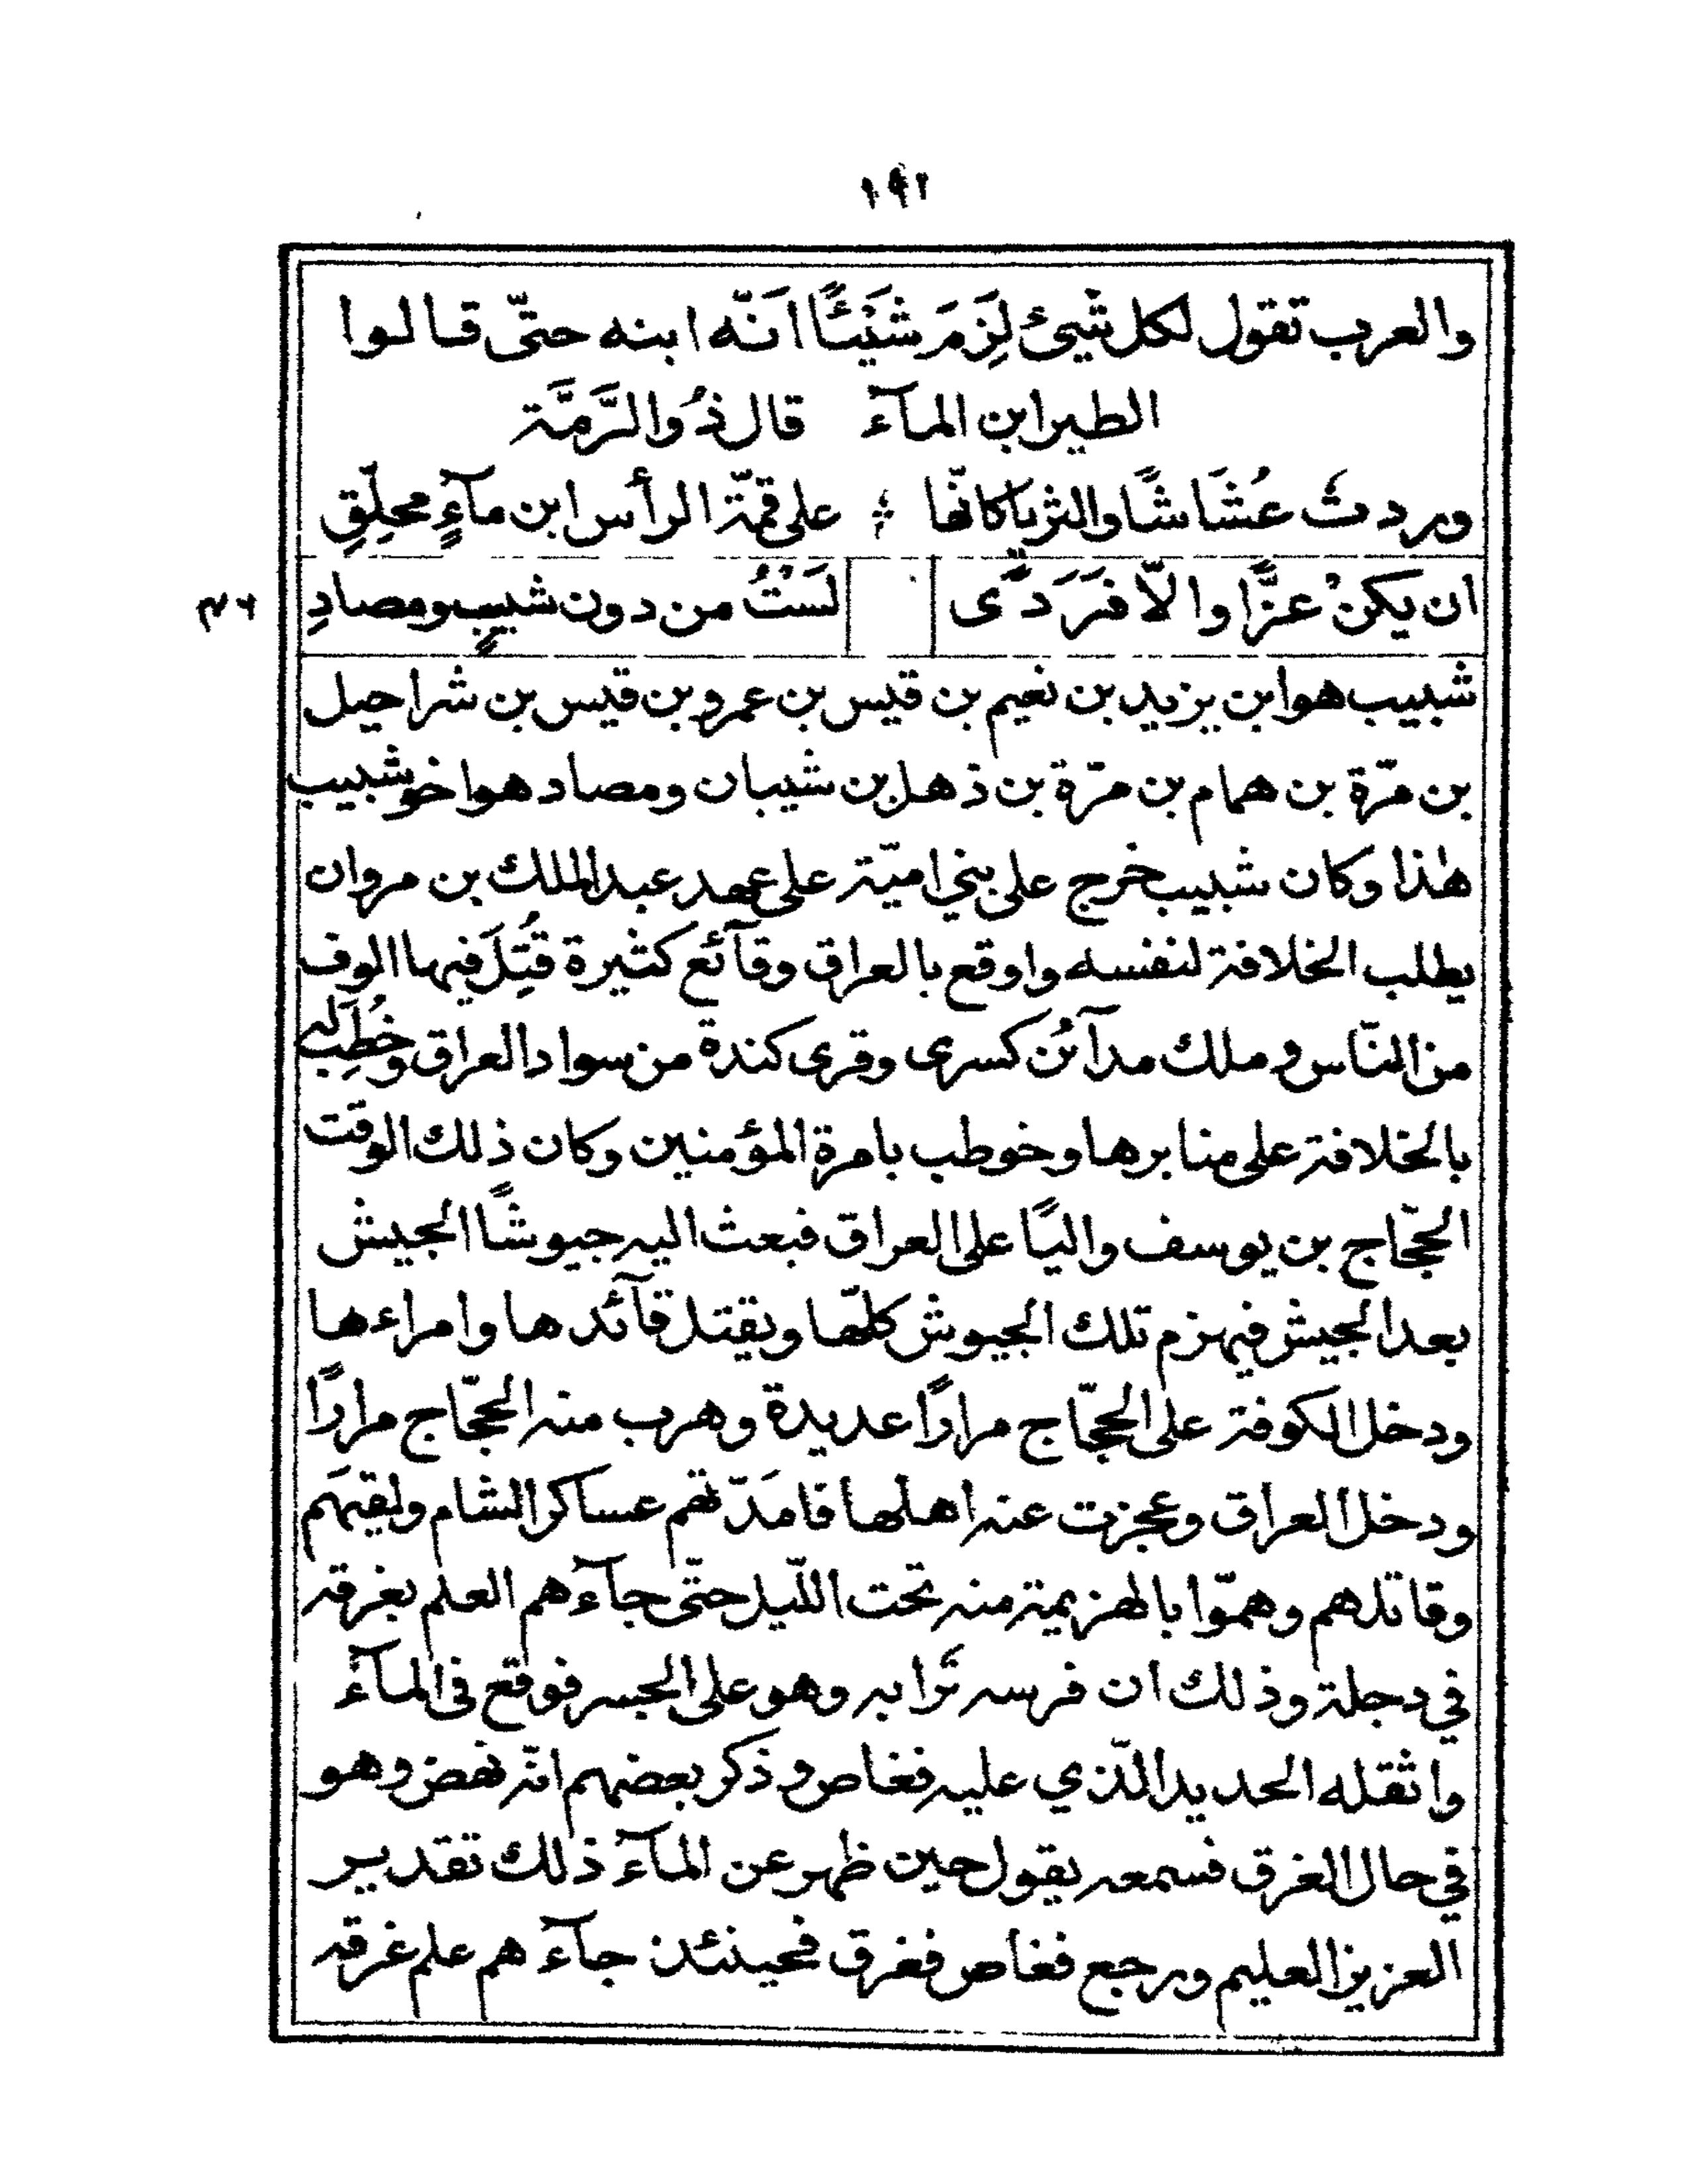 ١٩٢
والعرب تقول لكل شيئ لَزِمَ شَيْئًا اَنّه ابنه حتّى قالوا
الطير ابن المآء قال ذُو الرَّمَّة
وردت عُشَاشًا والثريا كانّها ؞ على قمّة الرأس ابن مآءٍ محلِّقِ
ان يكنْ عزًّا والّا فَرَدًى لَسْتُ من دون شبيبٍ ومصادِ
شبيب هو ابن يزيد بن نعيم بن قيس بن عمرو بن قيس بن شراحيل
بن مرّة بن همام بن مرّة بن ذهل بن شيبان ومصاد هو اخو شبيب
هٰذا وكان شبيب خرج على بني اميّة على عهد عبد الملك بن مروان
يطلب الخلافة لنفسه واوقع بالعراق وقآئع كثيرة قُتِلَ فيها الوف
من النّاس وملك مدآئن كسرى وقرى كندة من سواد العراق وخُطِبَ له
بالخلافة على منابرها وخوطب بامرة المؤمنين وكان ذلك الوقت
الحجّاج بن يوسف واليًا على العراق فبعث اليه جيوشًا الجيش
بعد الجيش فيهزم تلك الجيوش كلّها ويقتل قآئدها وامراءها
ودخل الكوفة على الحجّاج مرارًا عديدة وهرب منه الحجّاج مرارًا
ودخل العراق وعجزت عنه اهلها فامَدّتهم عساكر الشام ولقيهَم
وقاتلهم وهمّوا بالهزيمة منه تحت اللّيل حتّى جآءهم العلم بغرقه
في دجلة وذلك ان فرسه نَزا به وهو على الجسر فوقع فى المآء
واثقله الحديد الّذي عليه فغاص وذكر بعضهم انّه نهض وهو
في حال الغرق فسمعه يقول حين ظهر عن المآء ذلك تقدير
العزيز العليم ورجع فغاص فغرق فحينئذ جآءهم علم غرقه